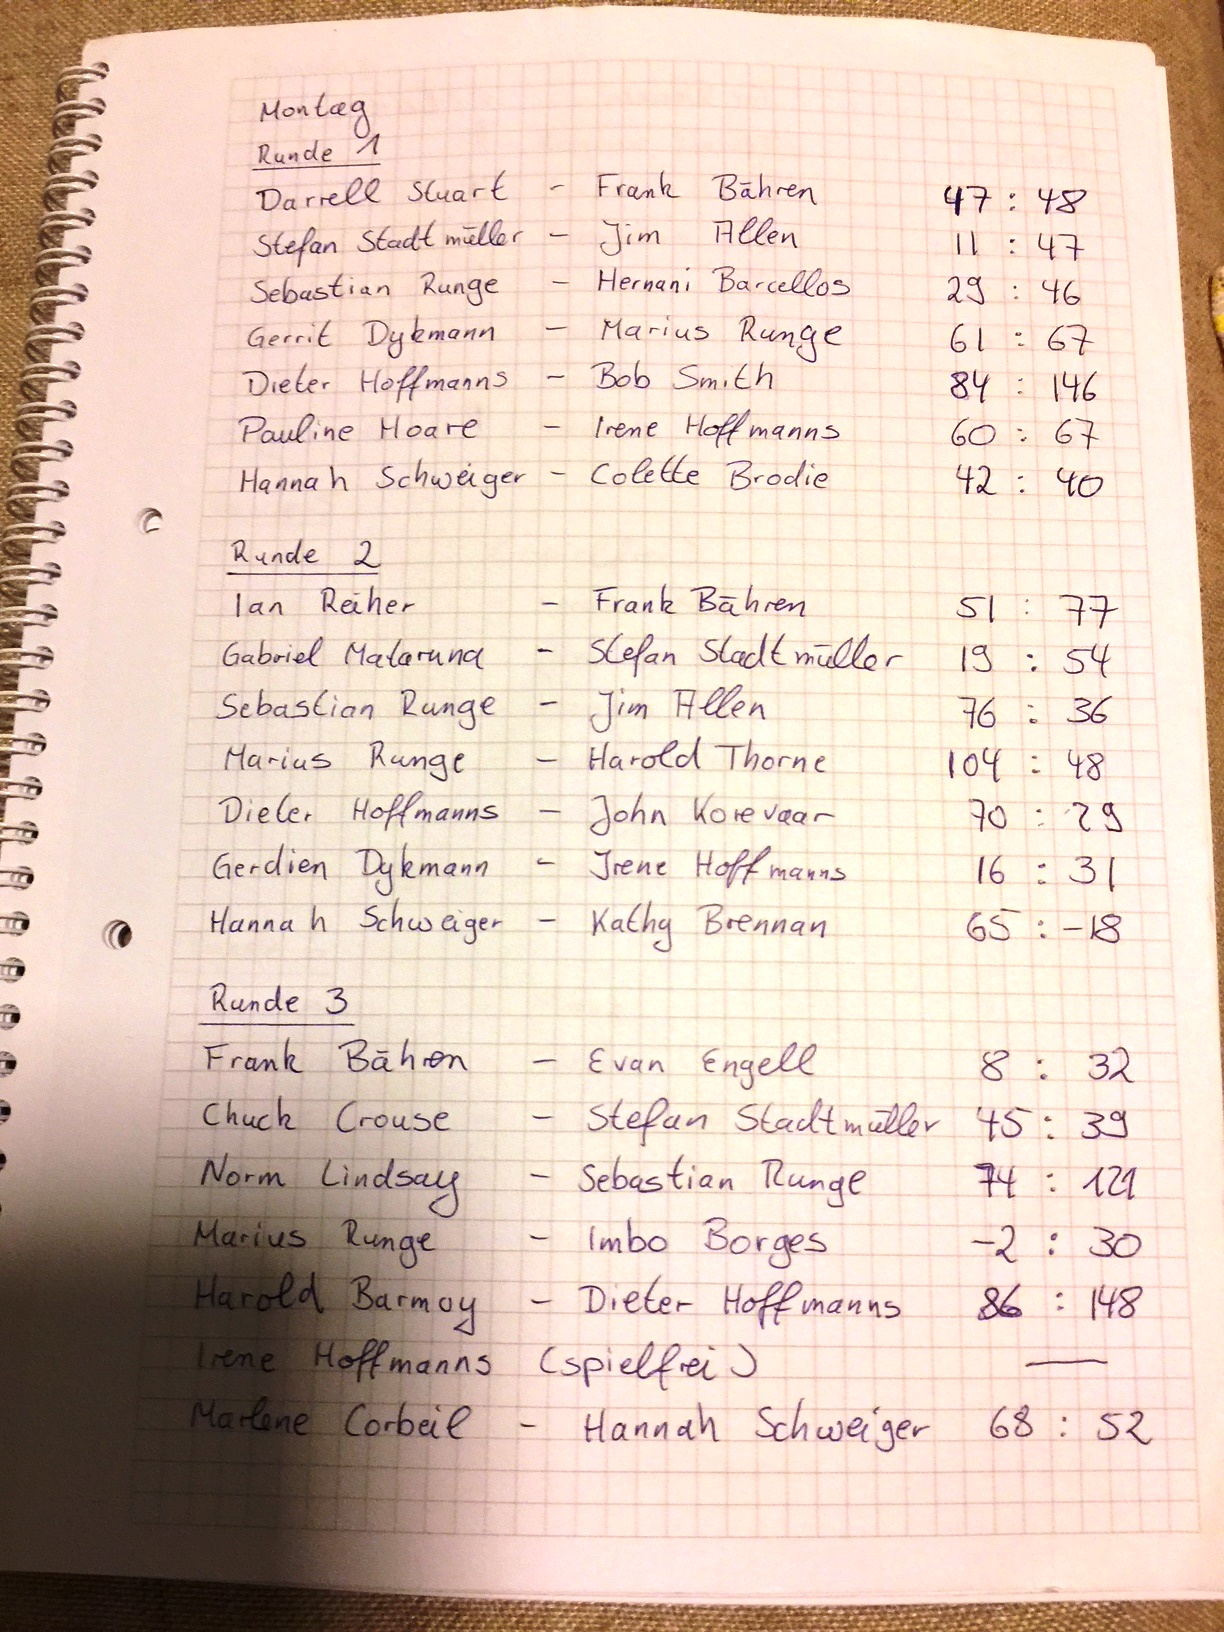 Montag
Runde 1
Darrell Stuart - Frank Bähren 47 : 48
Stefan Stadtmüller - Jim Allen 11 : 47
Sebastian Runge - Hernani Barcellos 29 : 46
Gerrit Dykmann - Marius Runge 61 : 67
Dieter Hoffmanns - Bob Smith 84 : 146
Pauline Hoare - Irene Hoffmanns 60 : 67
Hannah Schweiger - Colette Brodie 42 : 40
Runde 2
Ian Reiher - Frank Bähren 51 : 77
Gabriel - Stefan Stadtmüller 19 : 54
Sebastian Runge - Jim Allen 76 : 36
Marius Runge - Harold Thorne 104 : 48
Dieter Hoffmanns - John Korevaar 70 : 29
Gerdien Dykmann - Irene Hoffmanns 16 : 31
Hannah Schweiger - Kathy Brennan 65 : -18
Runde 3
Frank Bähren - Evan Engell 8 : 32
Chuck Crouse - Stefan Stadtmüller 45 : 39
Norm Lindsay - Sebastian Runge 74 : 121
Marius Runge - Imbo Borges -2 : 30
Harold Barmoy - Dieter Hoffmanns 86 : 148
Irene Hoffmanns (spielfrei) —
Marlene Corbeil - Hannah Schweiger 68 : 52